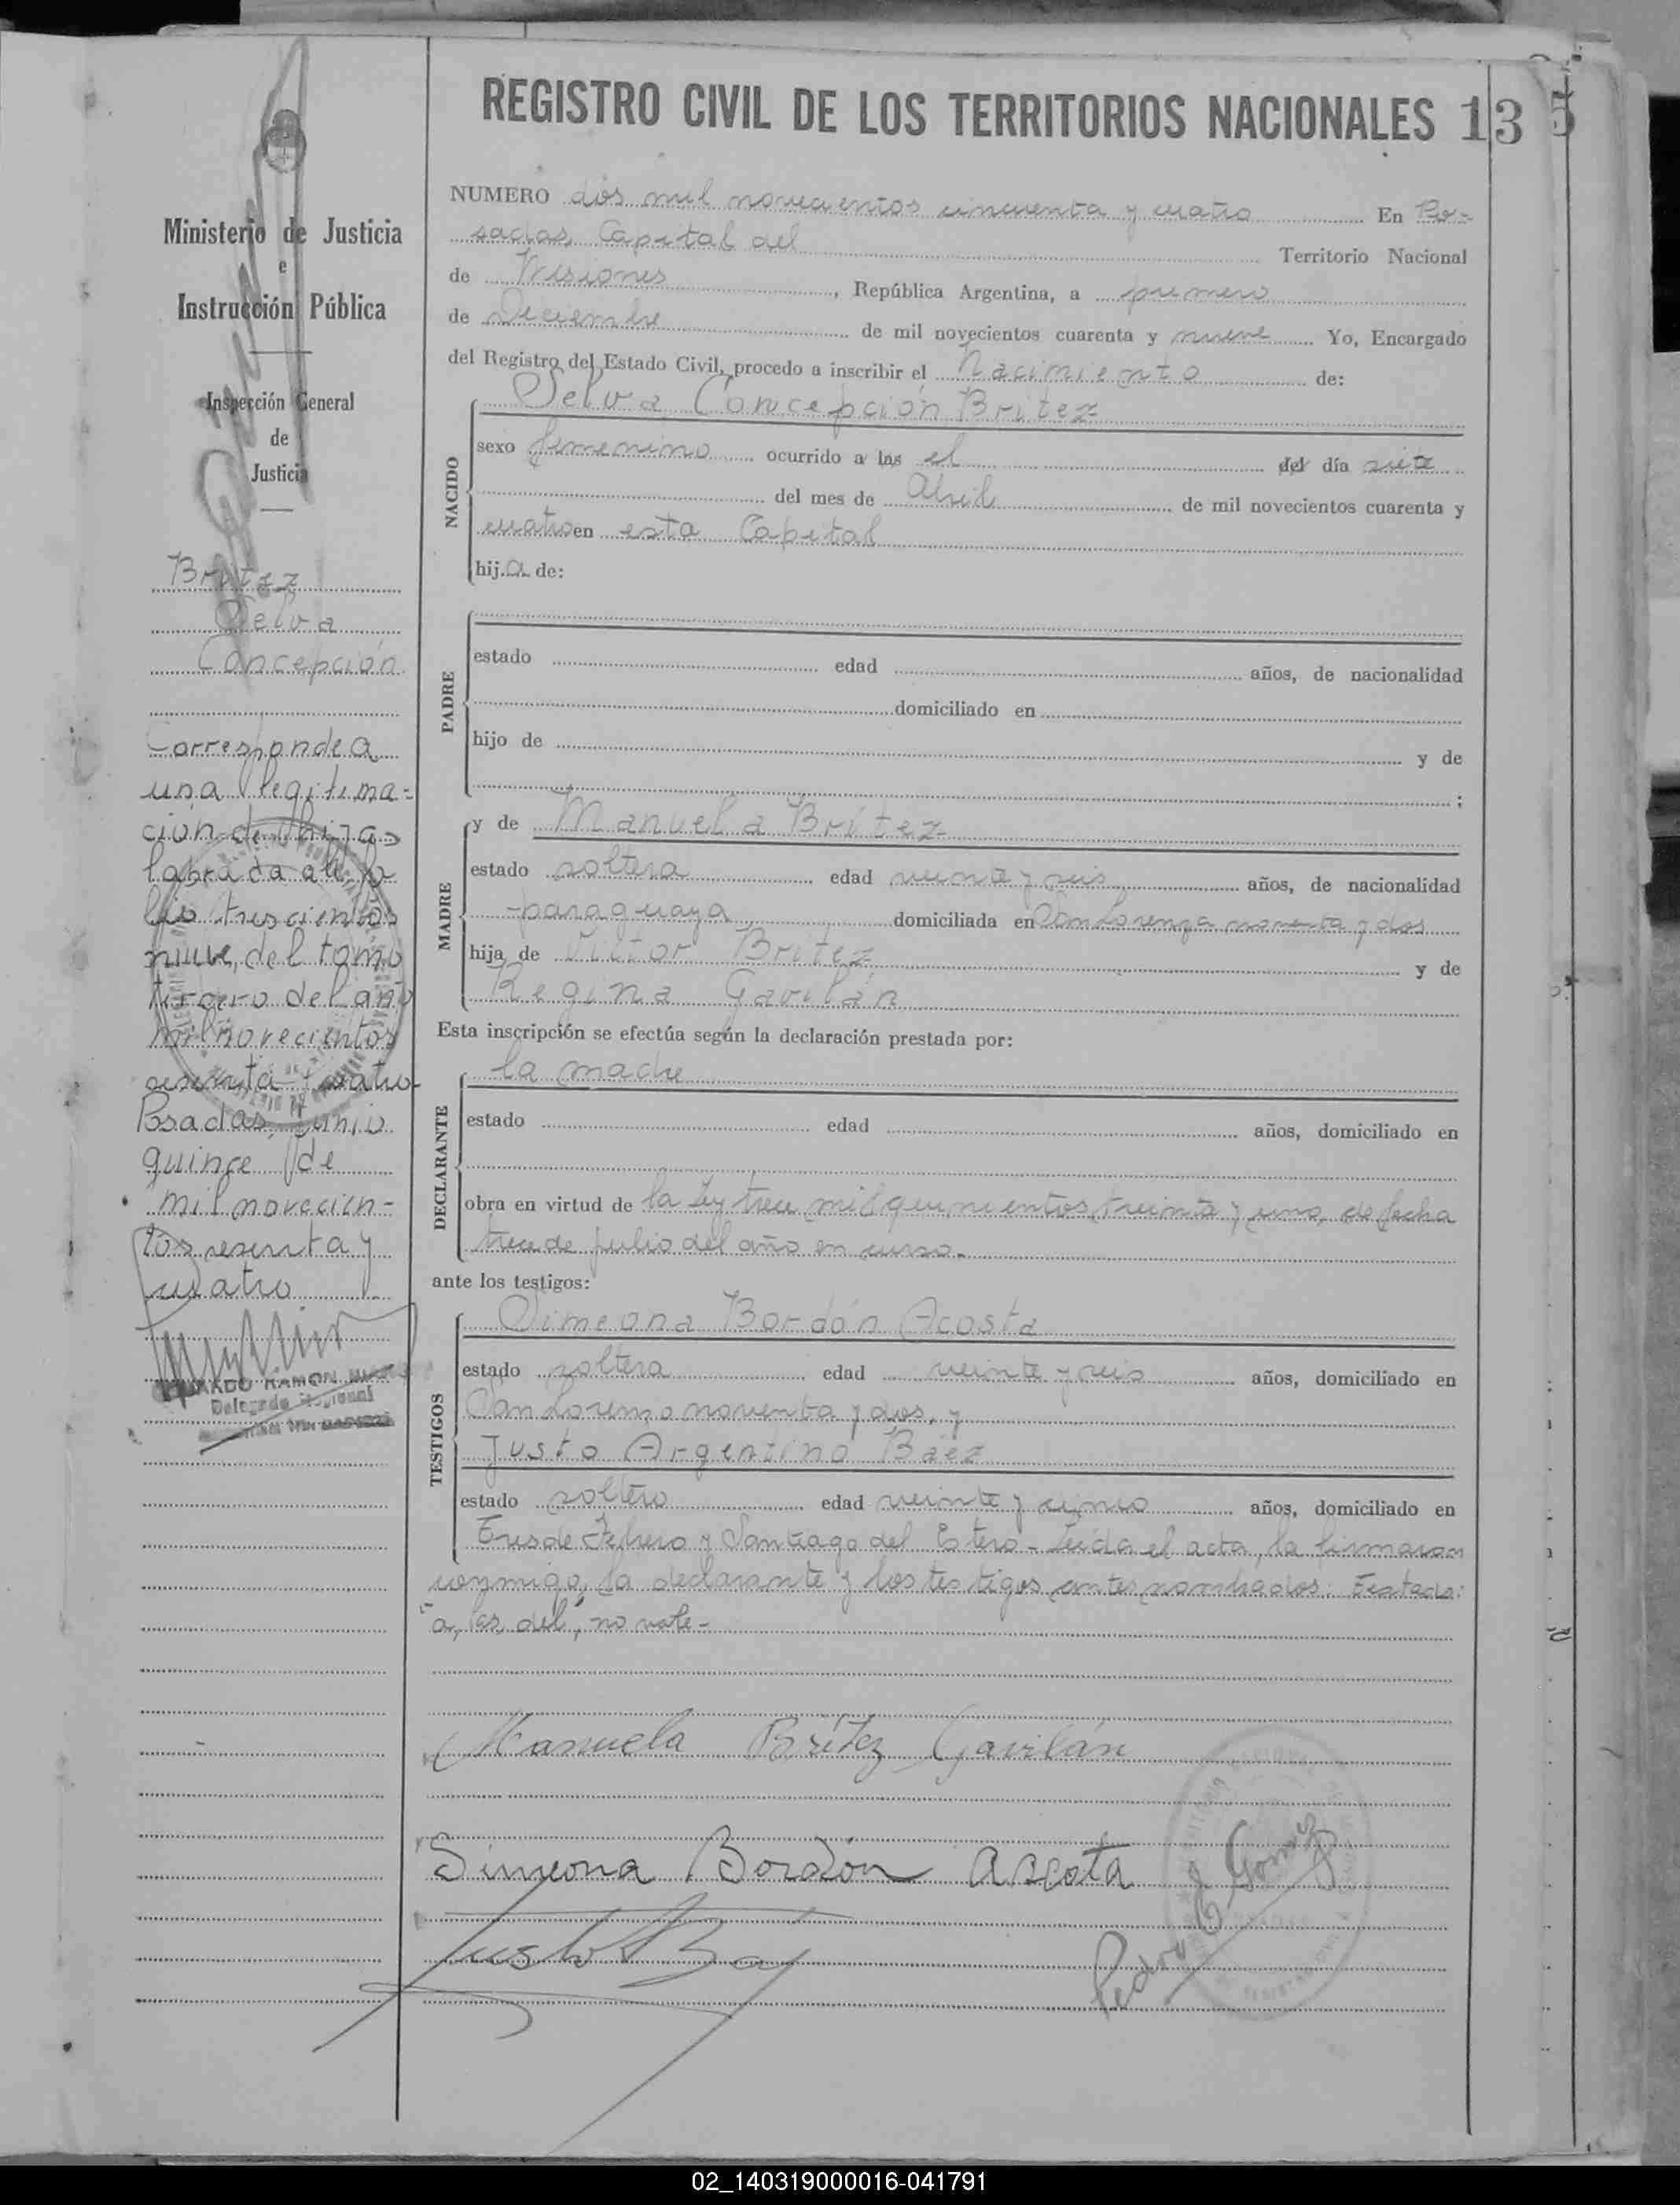 REGISTRO CIVIL DE LOS TERRITORIOS NACIONALES 13
Ministerio de Justicia
e
Instrucción Pública
Inspección General
de
Justicia
Britez
Selva
Concepción
Corresponde a
una legitima-
ción de hija
labrada al fo
lio trescientos
nueve, del tomo
tercero del año
mil novecientos
sesenta y cuatro
Posadas, Junio
quince de
mil novecien-
tos sesenta y
cuatro
RAMON
Delegado Regional
NUMERO dos mil novecientos cincuenta y cuatro En Po-
sadas, Capital del Territorio Nacional
de Misiones, República Argentina, a primero
de Diciembre de mil novecientos cuarenta y nueve Yo, Encargado
del Registro del Estado Civil, procedo a inscribir el Nacimiento de:
Selva Concepción Britez
NACIDO
sexo femenino ocurrido a las el del día siete
del mes de Abril de mil novecientos cuarenta y
cuatro en esta Capital
hija de:
PADRE
estado edad años, de nacionalidad
domiciliado en
hijo de y de
;
MADRE
y de Manuela Britez
estado soltera edad veinte y seis años, de nacionalidad
paraguaya domiciliada en San Lorenzo noventa y dos
hija de Victor Britez y de
Regina Gavilán
Esta inscripción se efectúa según la declaración prestada por:
la madre
DECLARANTE
estado edad años, domiciliado en
obra en virtud de la Ley trece mil quinientos treinta y uno, de fecha
trece de julio del año en curso.
ante los testigos:
TESTIGOS
Simeona Bordón Acosta
estado soltera edad veinte y seis años, domiciliado en
San Lorenzo noventa y dos, y
Justo Argentino Báez
estado soltero edad veinte y cinco años, domiciliado en
Tres de Febrero y Santiago del Estero - Leída el acta, la firmaron
conmigo, la declarante y los testigos antes nombrados: Testado:
"a, las, del", no vale-
Manuela Britez Gavilán
Simeona Bordón Acosta
Justo A Baez
Pedro J Gomez
02_140319000016-041791